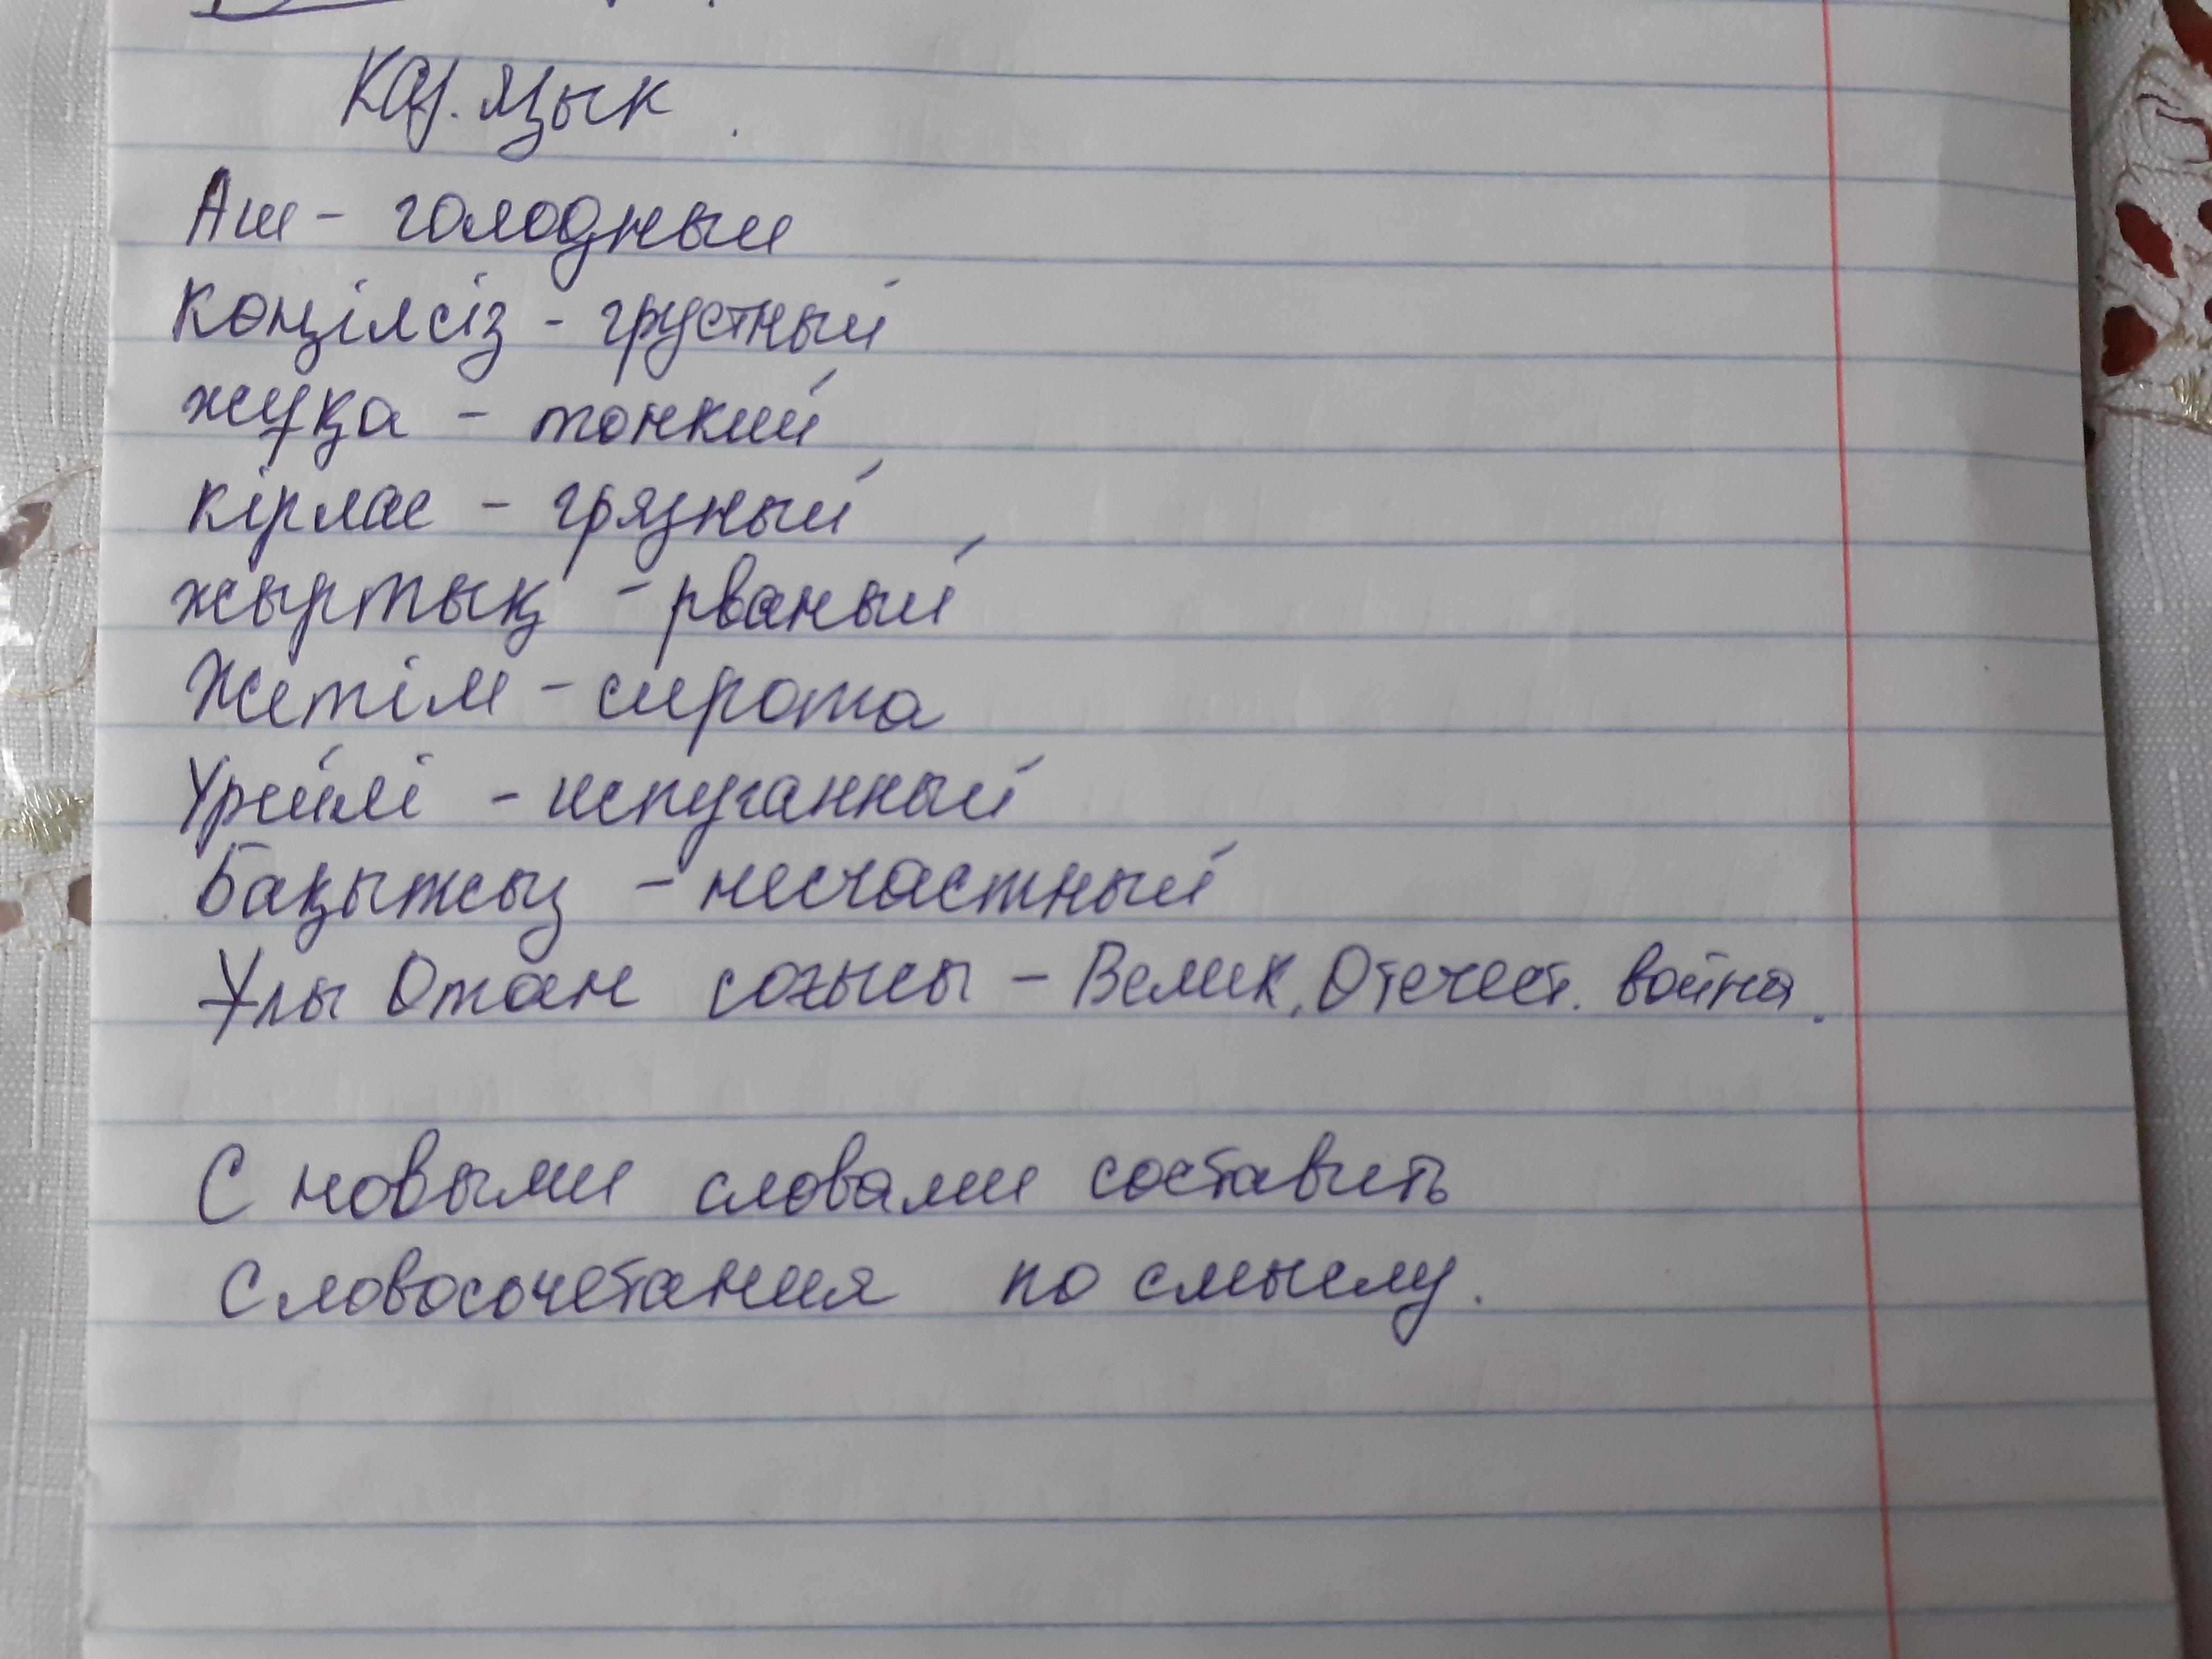 Каз. язык.
Аш - голодный
Көңілсіз - грустный
жұқа - тонкий
кірлас - грязный
жыртық - рваный
Жетім - сирота
Үрейлі - испуганный
Бақытсыз - несчастный
Ұлы Отан соғысы - Велик. Отечест. война.
С новыми словами составить
словосочетания по смыслу.